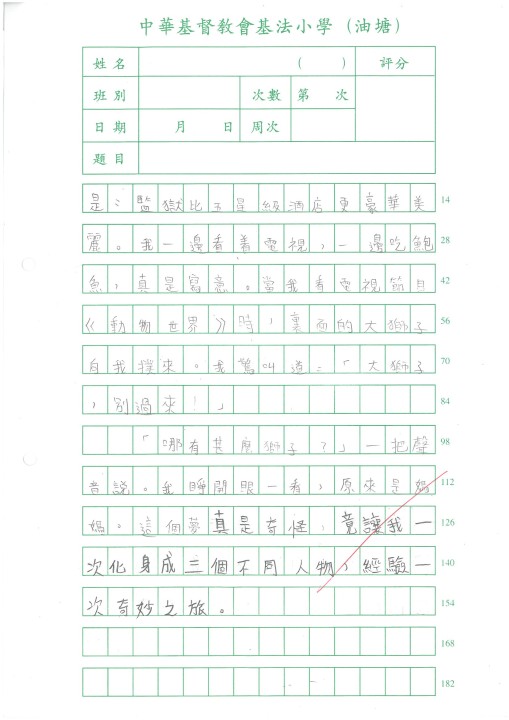 中華基督教會基法小學（油塘）
姓名 （ ） 評分
班別 次數 第 次
日期 月 日 周次
題目
是：監獄比五星級酒店更豪華美 14
麗。我一邊看着電視，一邊吃鮑 28
魚，真是寫意。當我看電視節目 42
《動物世界》時，裏面的大獅子 56
向我撲來。我驚叫道：「大獅子 70
，別過來！」 84
「哪有甚麼獅子？」一把聲 98
音説。我睜開眼一看，原來是媽 112
媽。這個夢真是奇怪，竟讓我一 126
次化身成三個不同人物，經驗一 140
次奇妙之旅。 154
168
182